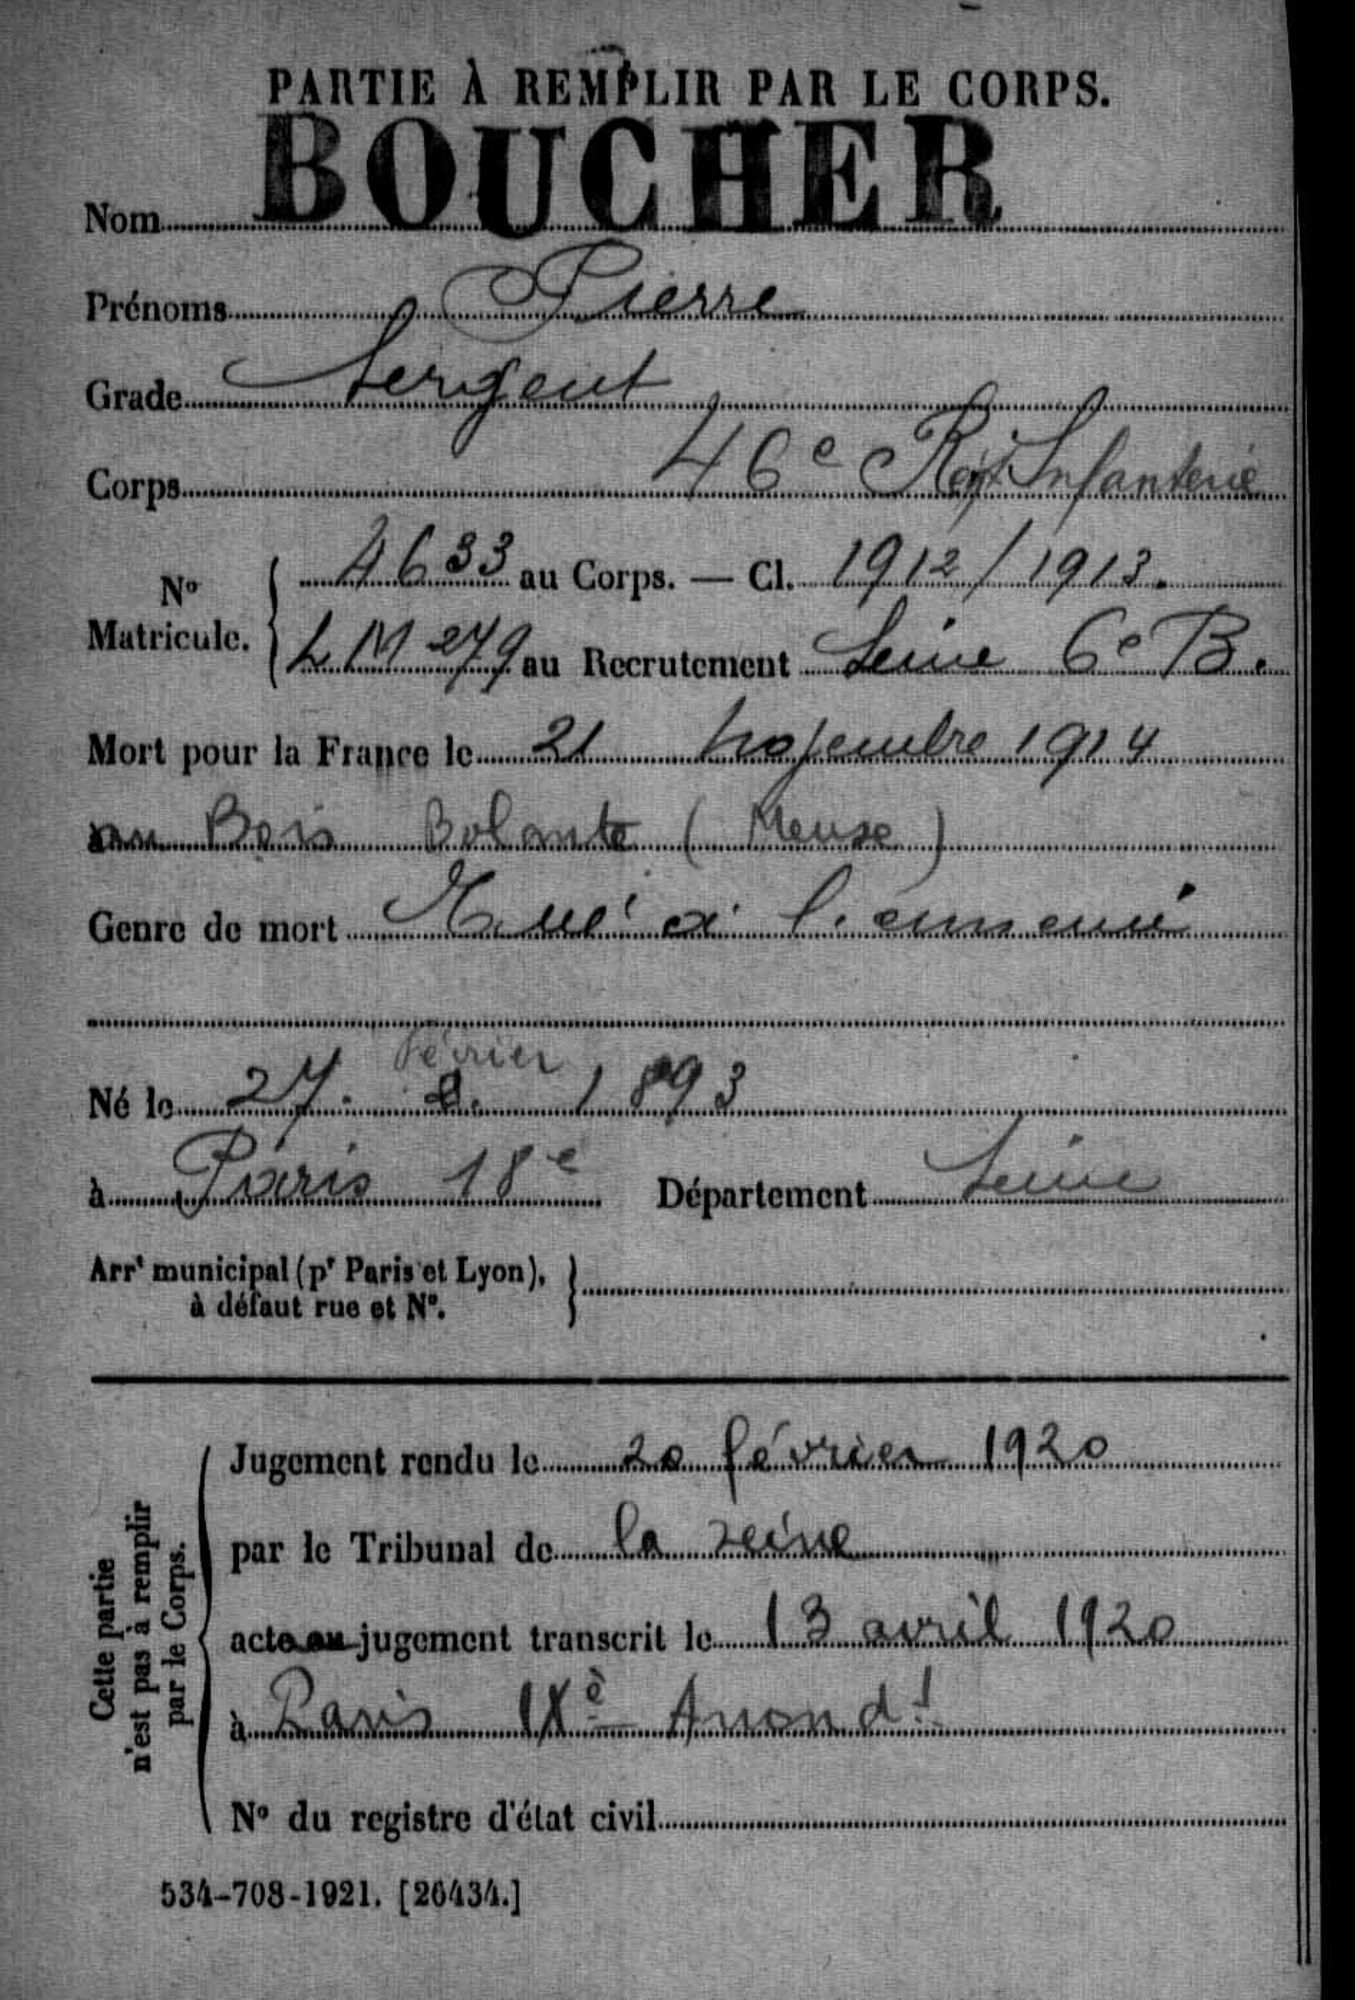 PARTIE À REMPLIR PAR LE CORPS.
Nom BOUCHER
Prénoms Pierre
Grade Sergent
Corps 46e Regt Infanterie
No Matricule. 4633 au Corps. — Cl. 1912/1913.
LM 279 au Recrutement Seine 6e B.
Mort pour la France le 21 novembre 1914
au Bois Bolante (Meuse)
Genre de mort Tué à l'ennemi
Né le 27. février 2. 1893
à Paris 18e Département Seine
Arrt municipal (pr Paris et Lyon),
à défaut rue et No.
Cette partie
n'est pas à remplir
par le Corps.
Jugement rendu le 20 février 1920
par le Tribunal de la seine
acte ou jugement transcrit le 13 avril 1920
à Paris IXè Arrondt
No du registre d'état civil
534-708-1921. [26434.]